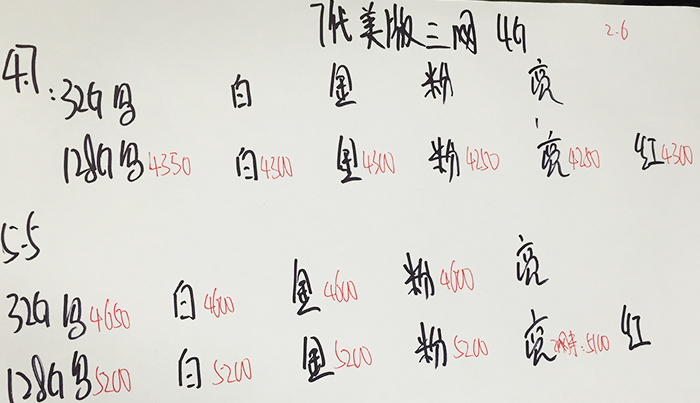 7代美版三网 4G 2.6
4.7:32G 黑 白 金 粉 亮
128G 黑4350 白4300 金4300 粉4250 亮4250 红4300
5.5
32G 黑4650 白4600 金4600 粉4600 亮
128G 黑5200 白5200 金5200 粉5200 亮 :5100 红